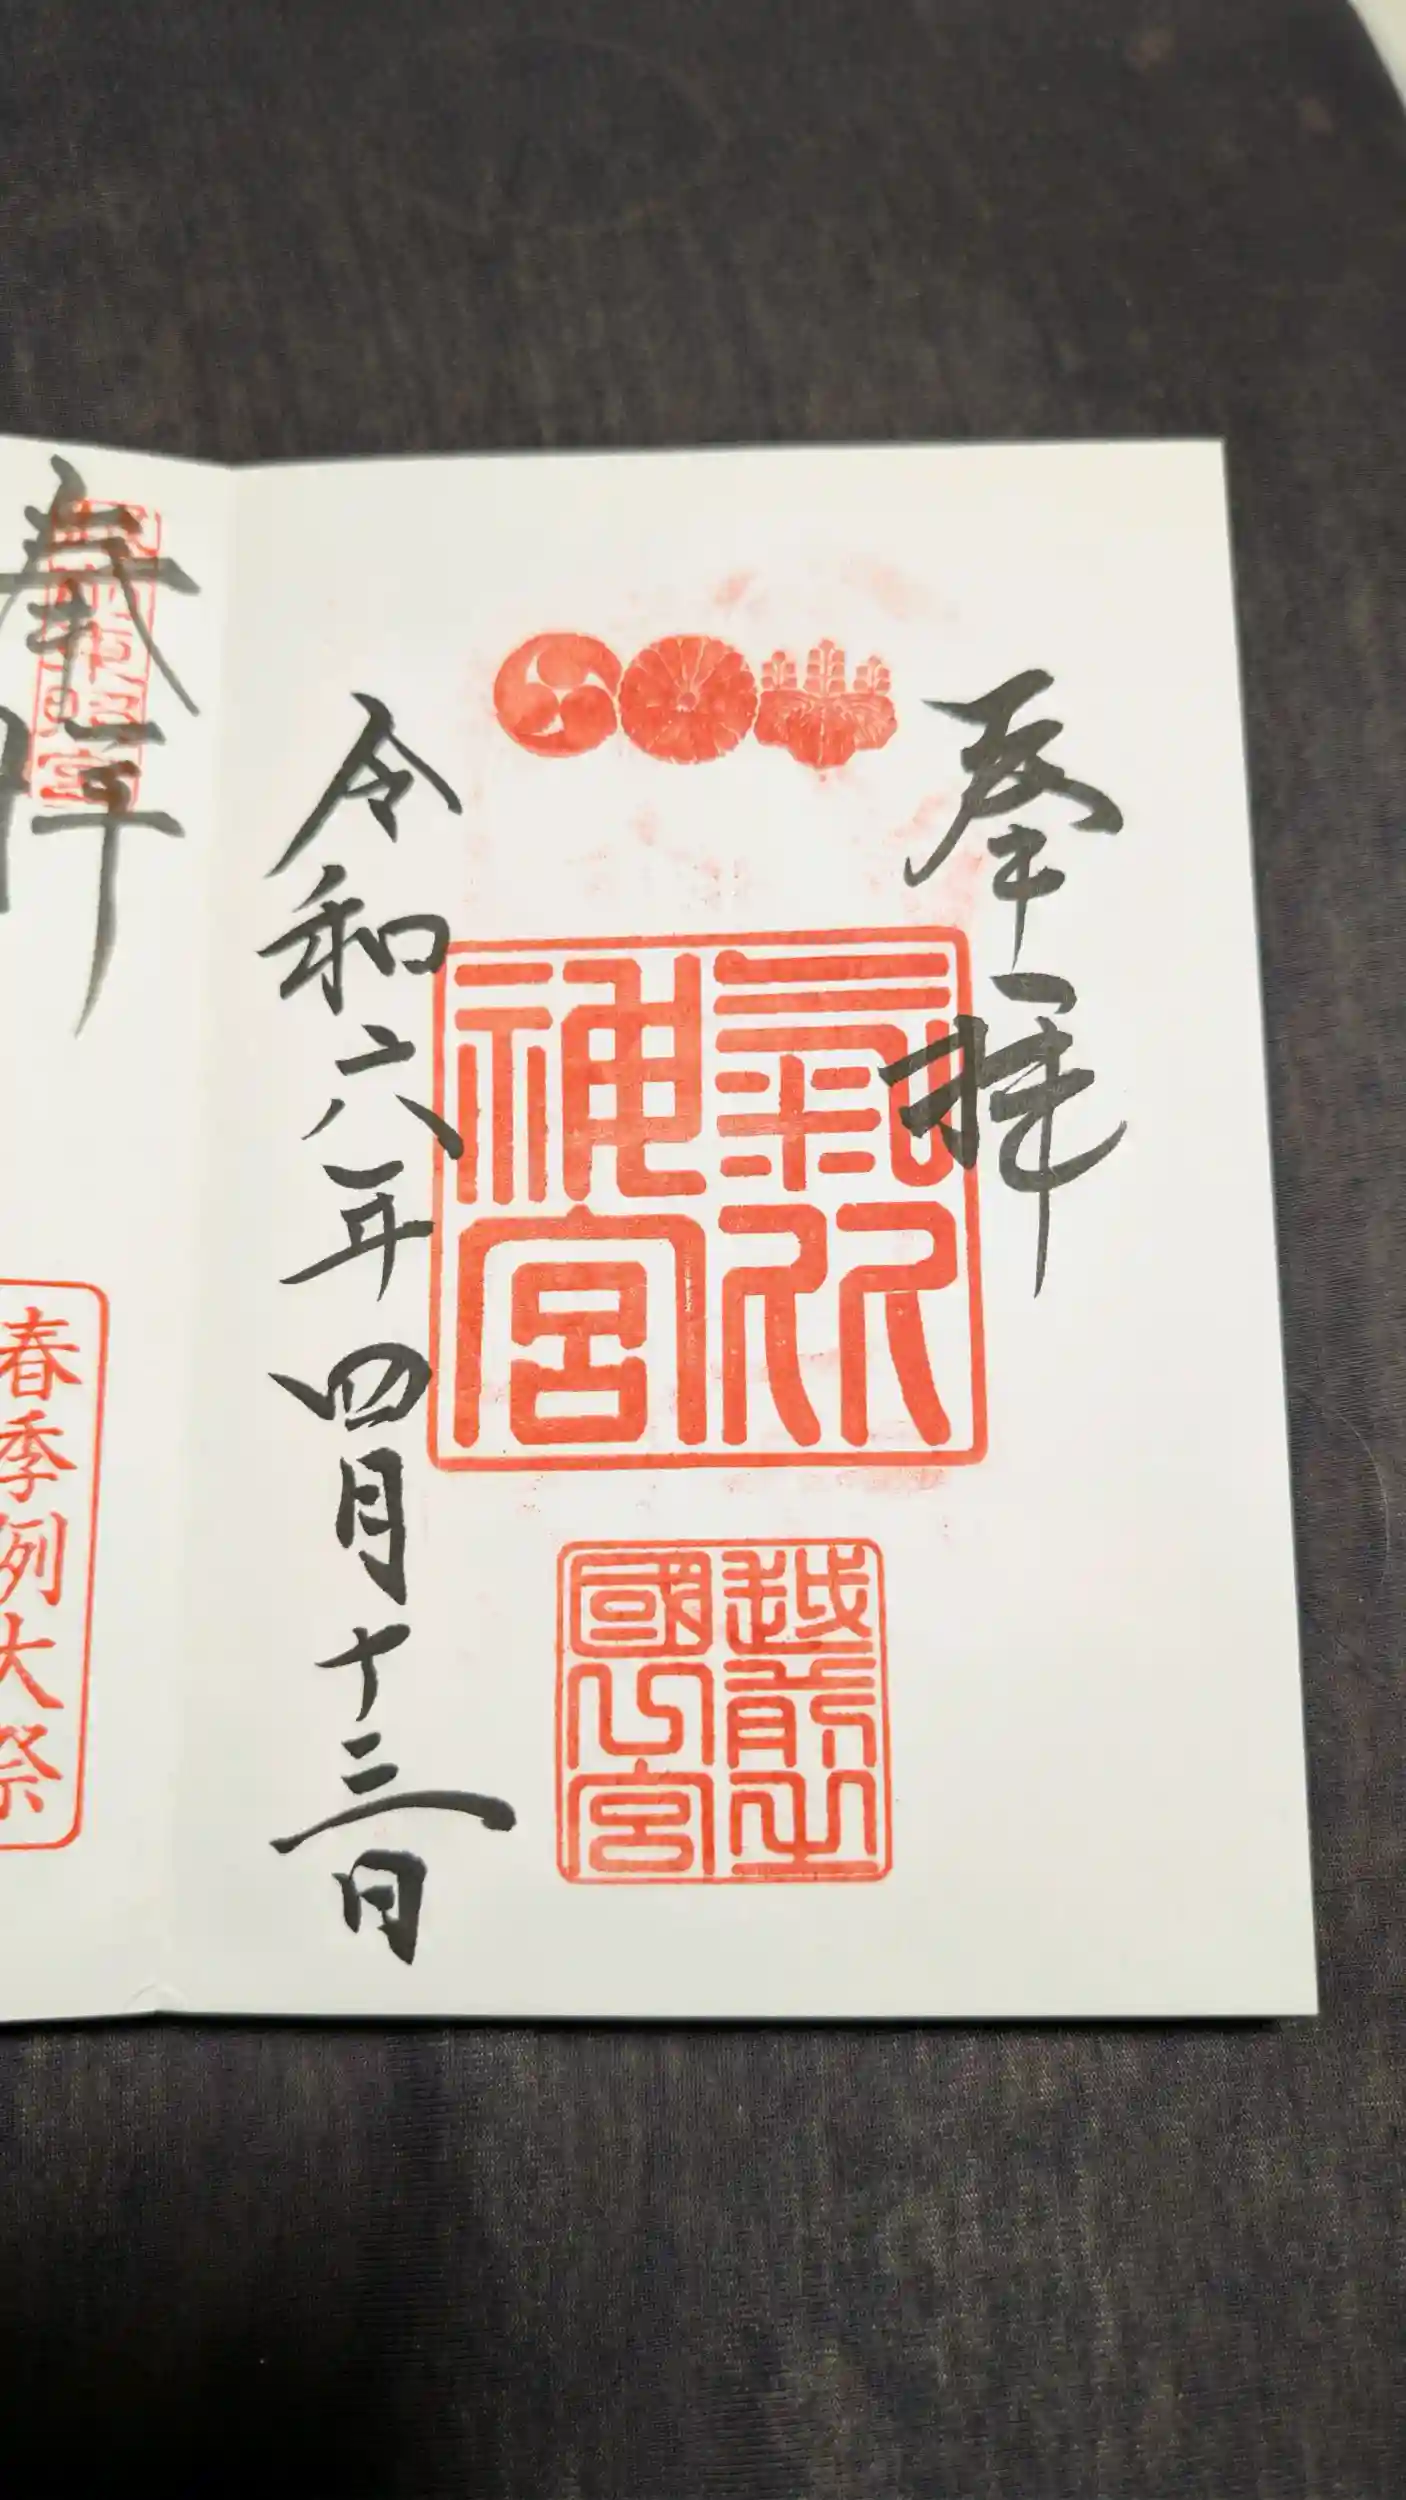 奉拝
氣比
神宮
越前之
國一宮
令和六年四月十三日
奉拝
春季例大祭